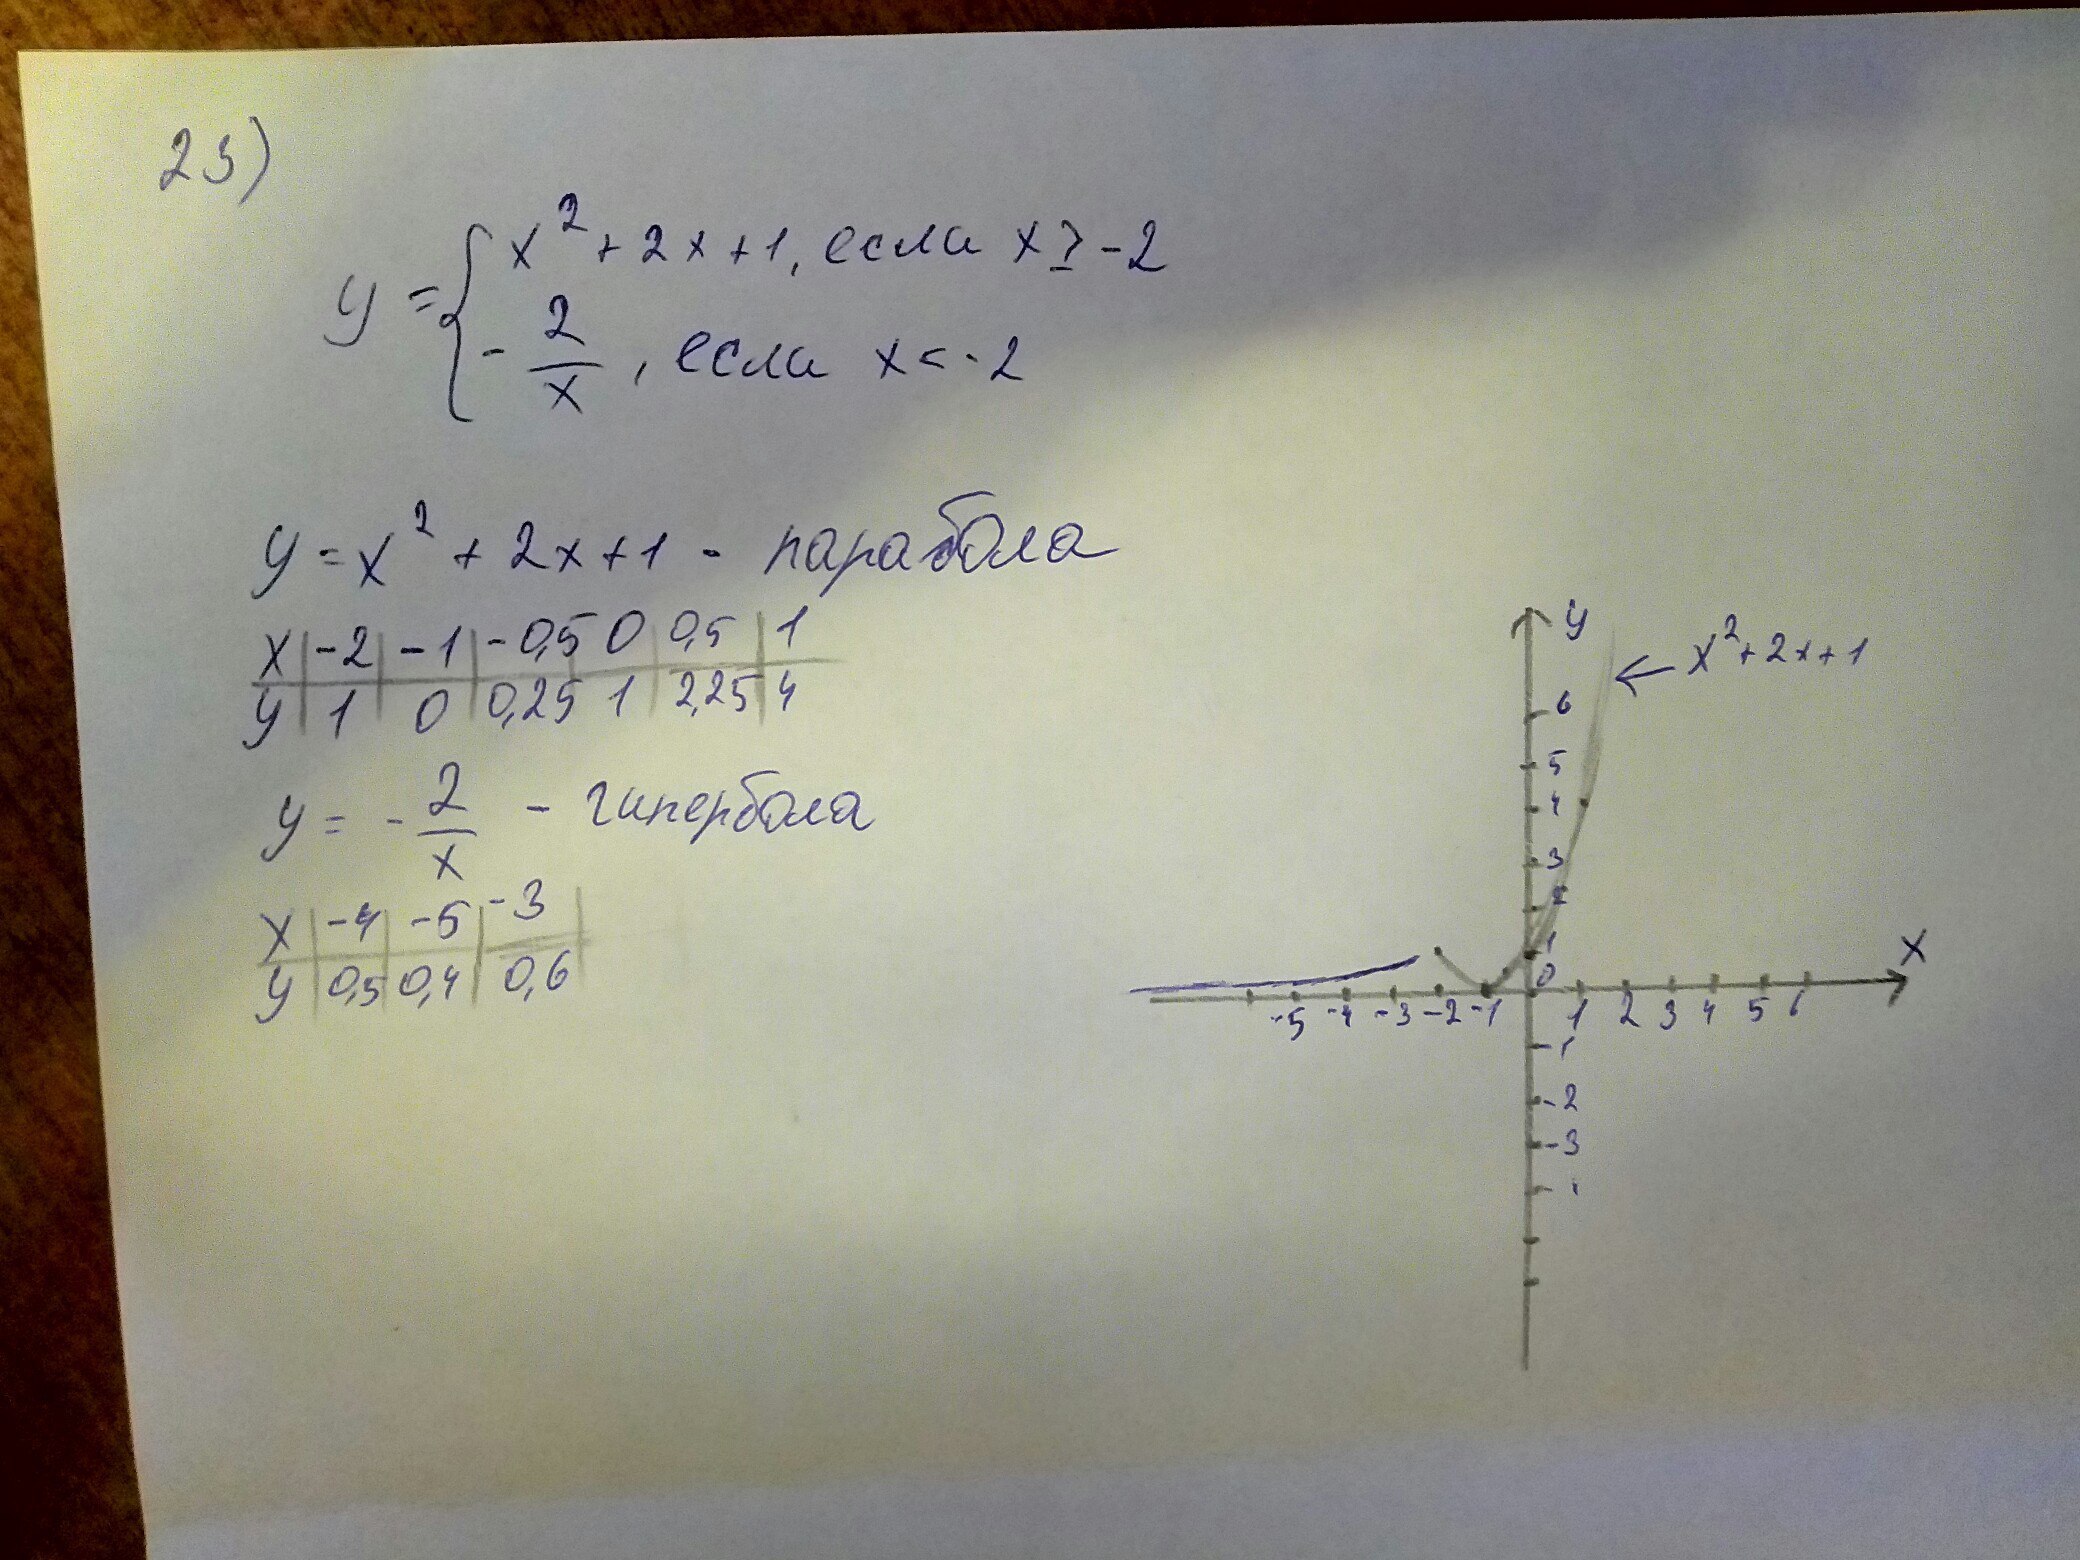 23)
y = { x² + 2x + 1, если x ≥ -2
- 2/x, если x < -2
y = x² + 2x + 1 - парабола
x | -2 | -1 | -0,5 0 | 0,5 | 1
y | 1 | 0 | 0,25 | 1 | 2,25 | 4
y = - 2/x - гипербола
x | -4 | -5 | -3
y | 0,5 | 0,4 | 0,6
y
← x² + 2x + 1
6
5
4
3
2
1
x
0
-5 -4 -3 -2 -1 1 2 3 4 5 6
-1
-2
-3